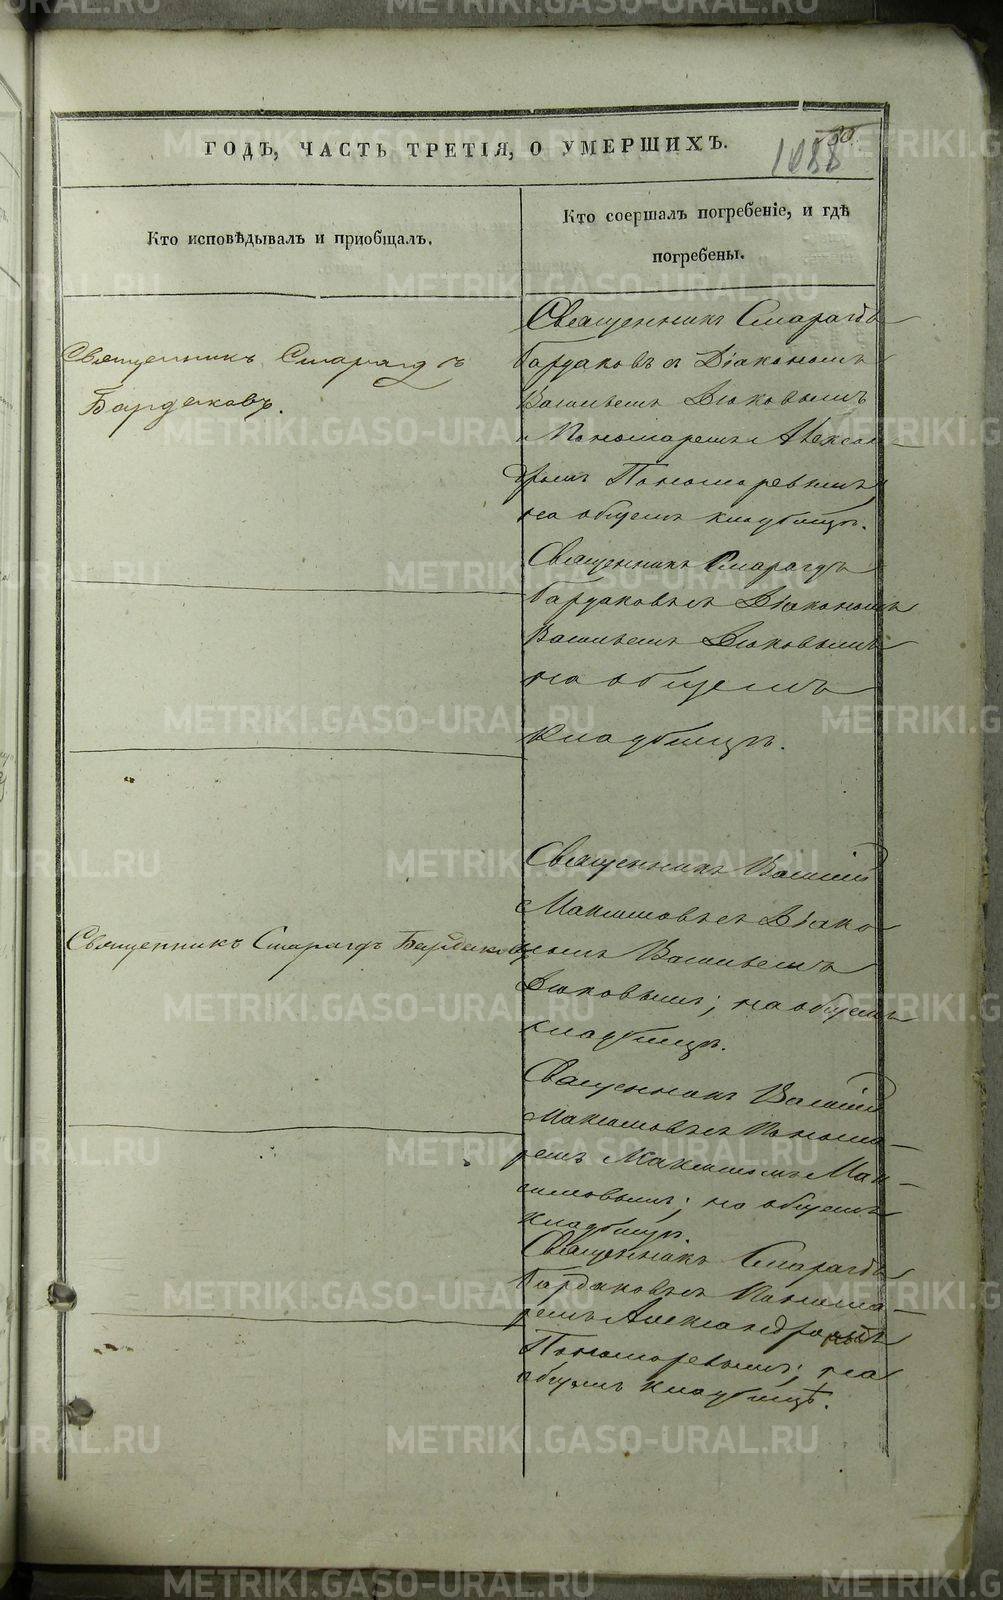 ГОДЪ, ЧАСТЬ ТРЕТІЯ, О УМЕРШИХЪ.
1088
Кто исповѣдывалъ и приобщалъ.
Кто соершалъ погребеніе, и гдѣ
погребены.
Священникъ Смарагдъ
Бардаковъ.
Священникъ Смарагдъ
Бардаковъ съ Діакономъ
Васильемъ Дюковымъ
и Пономаремъ Алексан-
дромъ Пономаревымъ,
на общемъ кладбищѣ.
Священникъ Смарагдъ
Бардаковъ съ Діакономъ
Васильемъ Дюковымъ
на общемъ
кладбищѣ.
Священникъ Смарагдъ Бардаковъ
Священникъ Василій
Максимовъ съ Діако
номъ Васильемъ
Дюковымъ; на общемъ
кладбищѣ.
Священникъ Василій
Максимовъ съ Понома-
ремъ Максимомъ Мак-
симовымъ; на общемъ
кладбищѣ.
Священникъ Смарагдъ
Бардаковъ съ Понома-
ремъ Александромъ
Пономаревымъ; на
общемъ кладбищѣ.
METRIKI.GASO-URAL.RU